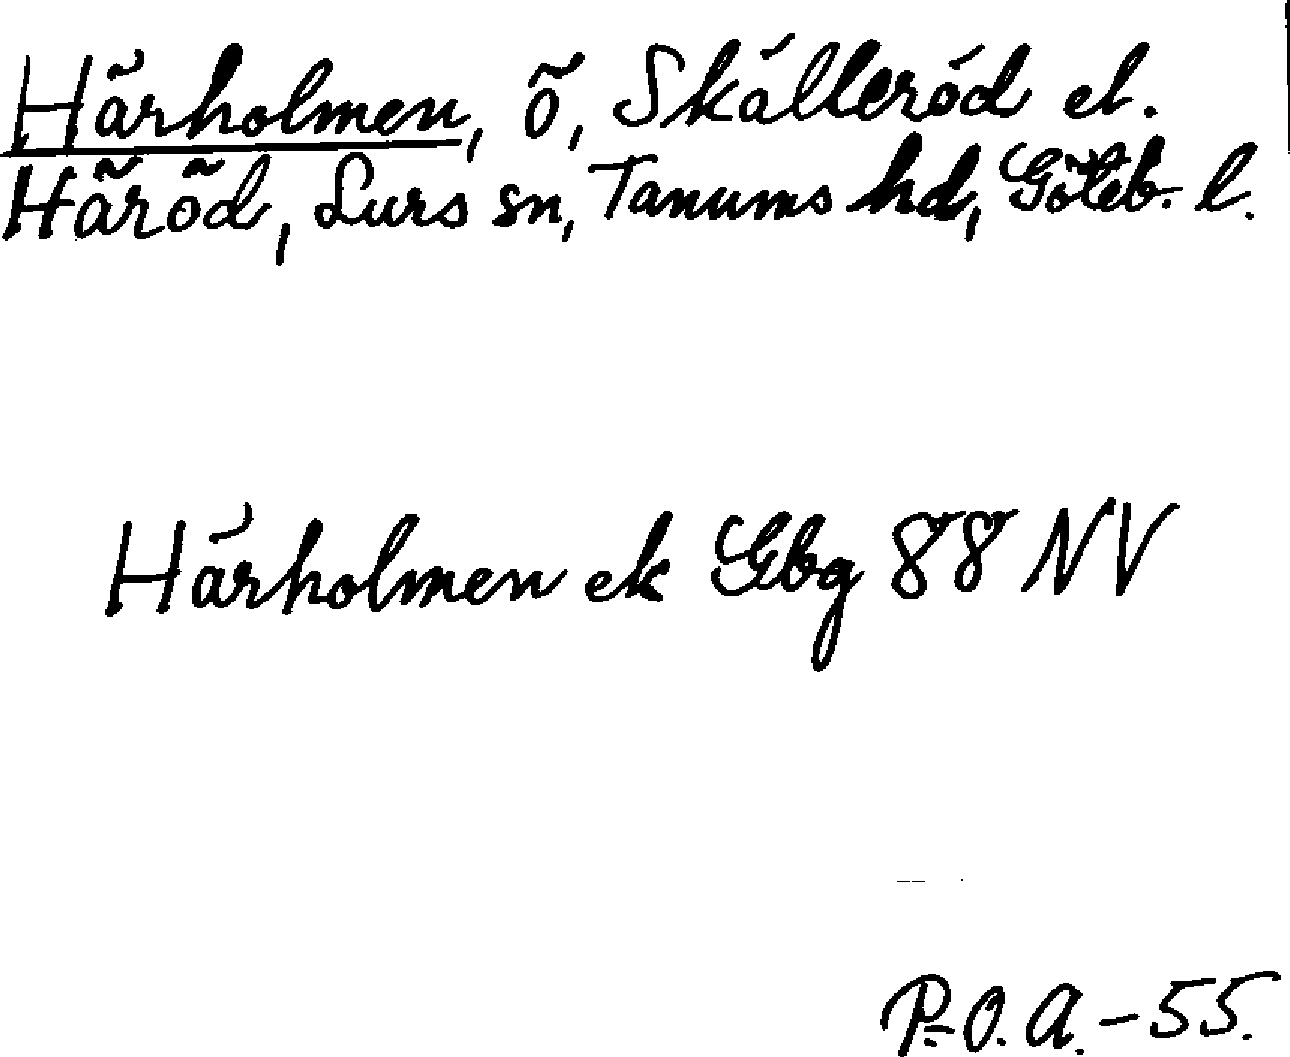 Härholmen, ö, Skälleröd el.
Häröd, Lurs sn, Tanums hd, Göteb. l.
Härholmen ek Gbg 88 NV
P.-O. A. -55.